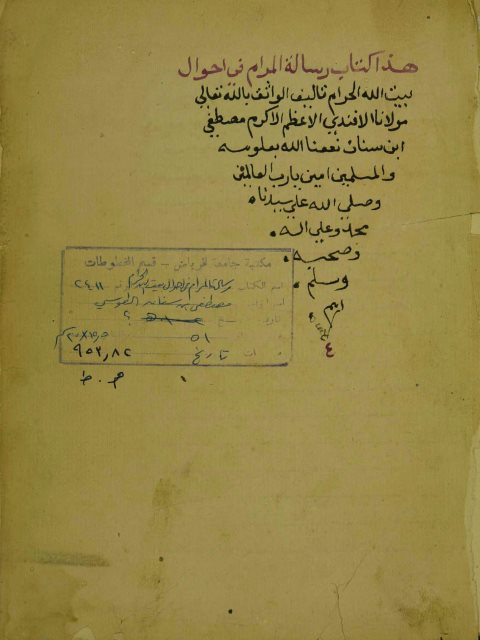 هذا كتاب رسالة المرام في احوال
بيت الله الحرام تاليف الواثق بالله تعالى
مولانا الافندي الاعظم الاكرم مصطفى
ابن سنان نفعنا الله بعلومه
والمسلمين امين يارب العالمين
وصلى الله على سيدنا
محمد وعلى اله
وصحبه
وسلم
٤
مكتبة جامعة الرياض - قسم المخطوطات
اسم الكتاب رسالة المرام في احوال بيت الله الحرام ٢٤١١
مصطفى بن سنان الطوسي
٥١
تاريخ ٩٥٣٫٨٢
م . ط